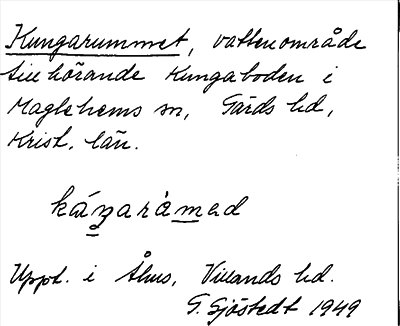 Kungarummet, vattenområde
tillhörande Kungaboden i
Maglehems sn, Gärds hd,
Krist. län.
káŋaràməd
Uppt. i Åhus, Villands hd.
G. Sjöstedt 1949